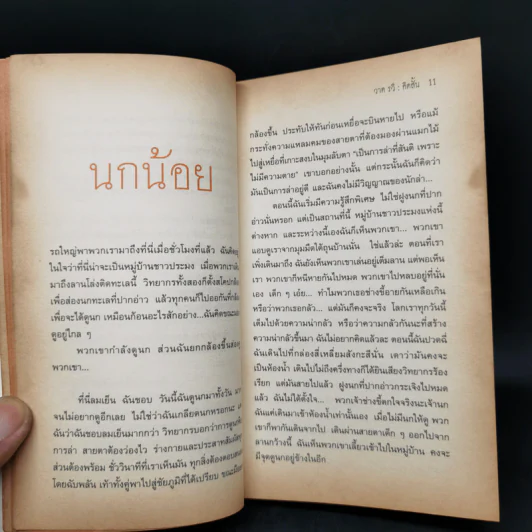 นกน้อย
รถใหญ่พาพวกเรามาถึงที่นี่เมื่อชั่วโมงที่แล้ว ฉันคิดอยู่
ในใจว่าที่นี่น่าจะเป็นหมู่บ้านชาวประมง เมื่อพวกเราเดิน
มาถึงลานโล่งติดทะเลนี้ วิทยากรทั้งสองก็ตั้งสโคปกล้อง
เพื่อส่องนกทะเลที่ปากอ่าว แล้วทุกคนก็ไปออกันที่กล้อง
เพื่อจะได้ดูนก เหมือนก้อนอะไรสักอย่าง...ฉันคิดขณะมอง
ดูอยู่ไกล ๆ
พวกเขากำลังดูนก ส่วนฉันยกกล้องขึ้นส่อง
พวกเขา...
ที่นี่ลมเย็น ฉันชอบ วันนี้ฉันดูนกมาทั้งวัน
จนไม่อยากดูอีกเลย ไม่ใช่ว่าฉันเกลียดนกหรอกนะ
ฉันว่าฉันชอบลมเย็นมากกว่า วิทยากรบอกว่าการดูนก
การล่า สายตาต้องว่องไว ร่างกายและประสาทสัมผัสทุก
ส่วนต้องพร้อม ชั่ววินาทีที่เราเห็นมัน ทุกสิ่งต้องตอบสนอง
โดยฉับพลัน เท้าทั้งคู่พาไปสู่ชัยภูมิที่ได้เปรียบ ขณะมือยก
วาด รวี : คิดสั้น 11
กล้องขึ้น ประทับให้ทันก่อนเหยื่อจะบินหายไป หรือแม้
กระทั่งความแหลมคมของสายตาที่ต้องมองผ่านแมกไม้
ไปสู่เหยื่อที่เกาะสงบในมุมลับตา "เป็นการล่าที่สันติ เพราะ
ไม่มีความตาย" เขาบอกอย่างนั้น แต่กระนั้นฉันก็คิดว่า
มันเป็นการล่าอยู่ดี และฉันคงไม่มีวิญญาณของนักล่า...
ตอนนี้ฉันเริ่มมีความรู้สึกพิเศษ ไม่ใช่ฝูงนกที่ปาก
อ่าวนั่นหรอก แต่เป็นสถานที่นี้ หมู่บ้านชาวประมงแห่งนี้
ต่างหาก และระหว่างนี้เองฉันก็เห็นพวกเขา... พวกเขา
แอบดูเราจากมุมมืดใต้ถุนบ้านนั่น ใช่แล้วล่ะ ตอนที่เรา
เพิ่งเดินมาถึง ฉันยังเห็นพวกเขาเล่นอยู่เต็มลาน แต่พอเห็น
เรา พวกเขาก็หนีหายกันไปหมด พวกเขาไปหลบอยู่ที่นั่น
เอง เด็ก ๆ เอ๋ย... ทำไมพวกเธอช่างขี้อายกันเหลือเกิน
หรือว่าพวกเธอกลัว... แต่มันก็คงจะจริง โลกเราทุกวันนี้
เต็มไปด้วยความน่ากลัว หรือว่าความกลัวกันนะที่สร้าง
ความน่ากลัวขึ้นมา ฉันไม่อยากคิดแล้วละ ตอนนี้ฉันปวดฉี่
ฉันเดินไปที่กล่องสี่เหลี่ยมสังกะสีนั่น เดาว่ามันคงจะ
เป็นห้องน้ำ เดินไปไม่ถึงครึ่งทางก็ได้ยินเสียงวิทยากรร้อง
เรียก แต่มันสายไปแล้ว ฝูงนกที่ปากอ่าวกระเจิงไปหมด
แล้ว ฉันไม่ได้ตั้งใจ... พวกเจ้าช่างขี้ตกใจจริงนะเจ้านก
ฉันแค่เดินมาเข้าห้องน้ำเท่านั้นเอง เมื่อไม่มีนกให้ดู พวก
เขาก็พากันเดินจากไป เดินผ่านสายตาเด็ก ๆ ออกไปจาก
ลานกว้างนี้ ฉันเห็นพวกเขาเลี้ยวเข้าไปในหมู่บ้าน คงจะ
มีจุดดูนกอยู่ข้างในอีก